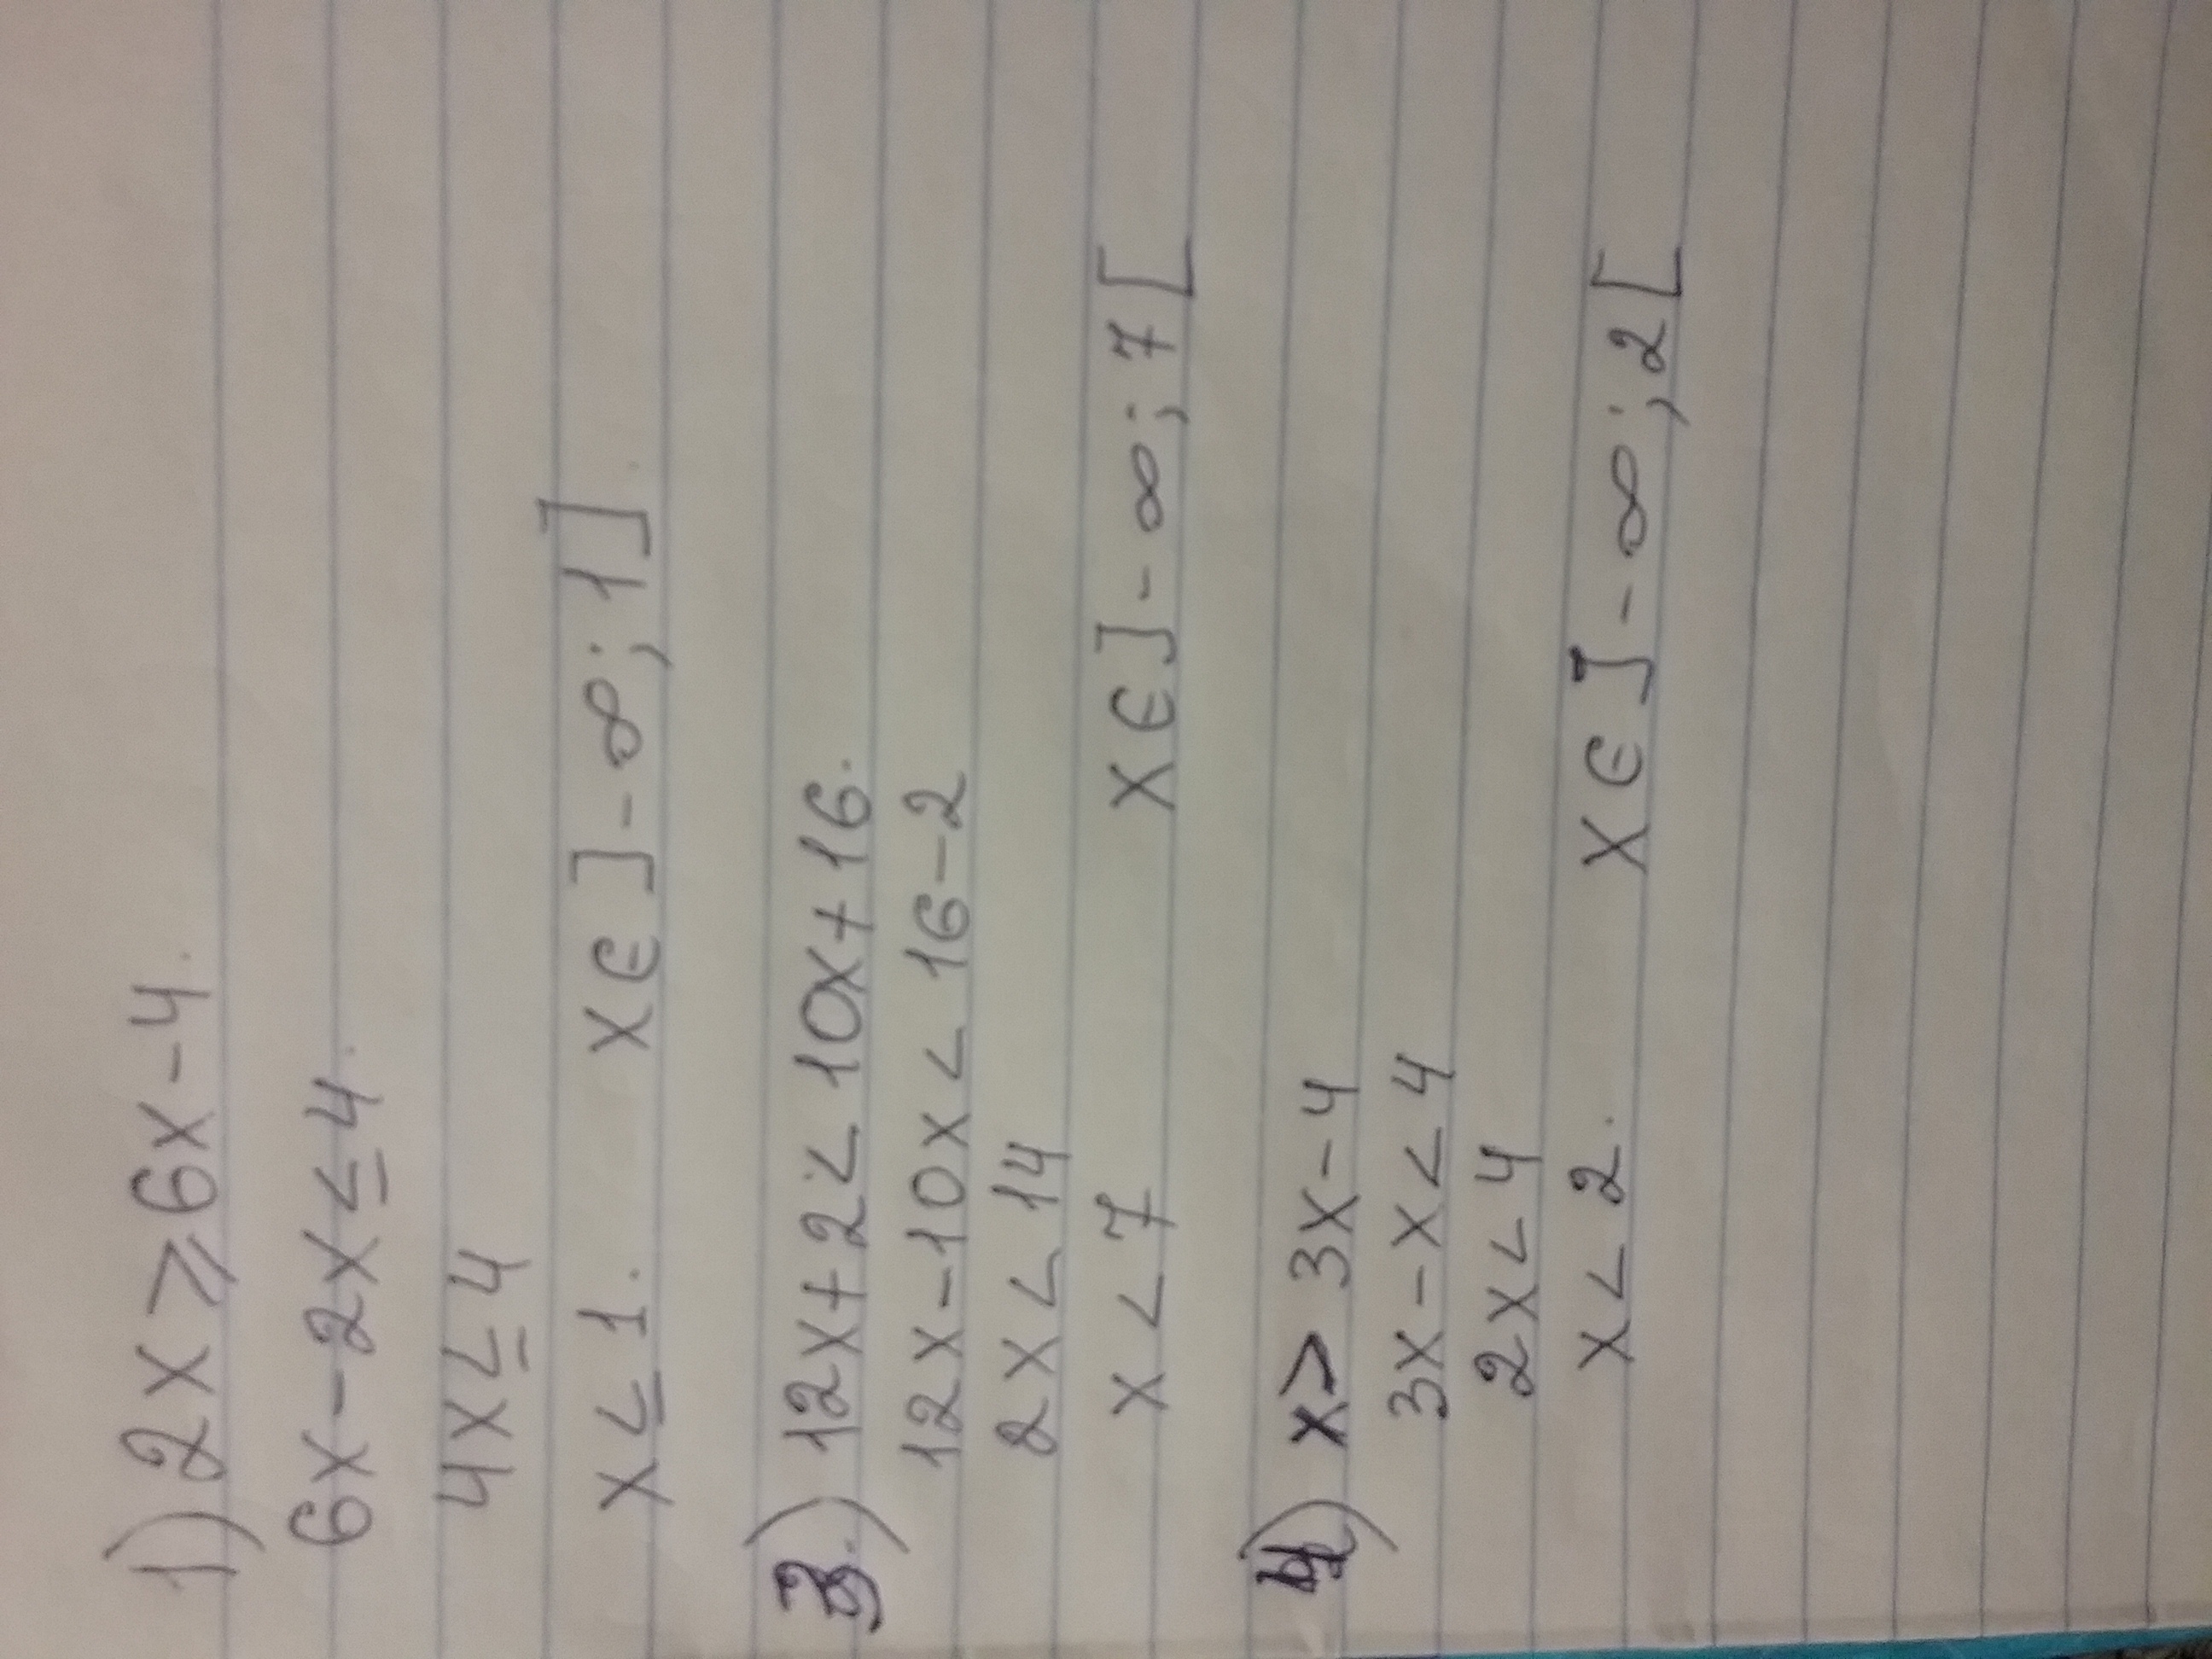 1) 2x ⩾ 6x - 4.
6x - 2x ≤ 4.
4x ≤ 4
x ≤ 1. x ∈ ] - ∞ ; 1 ]
3.) 12x + 2 < 10x + 16.
12x - 10x < 16 - 2
2x < 14
x < 7 x ∈ ] - ∞ ; 7 [
4) x > 3x - 4
3x - x < 4
2x < 4
x < 2. x ∈ ] - ∞ ; 2 [